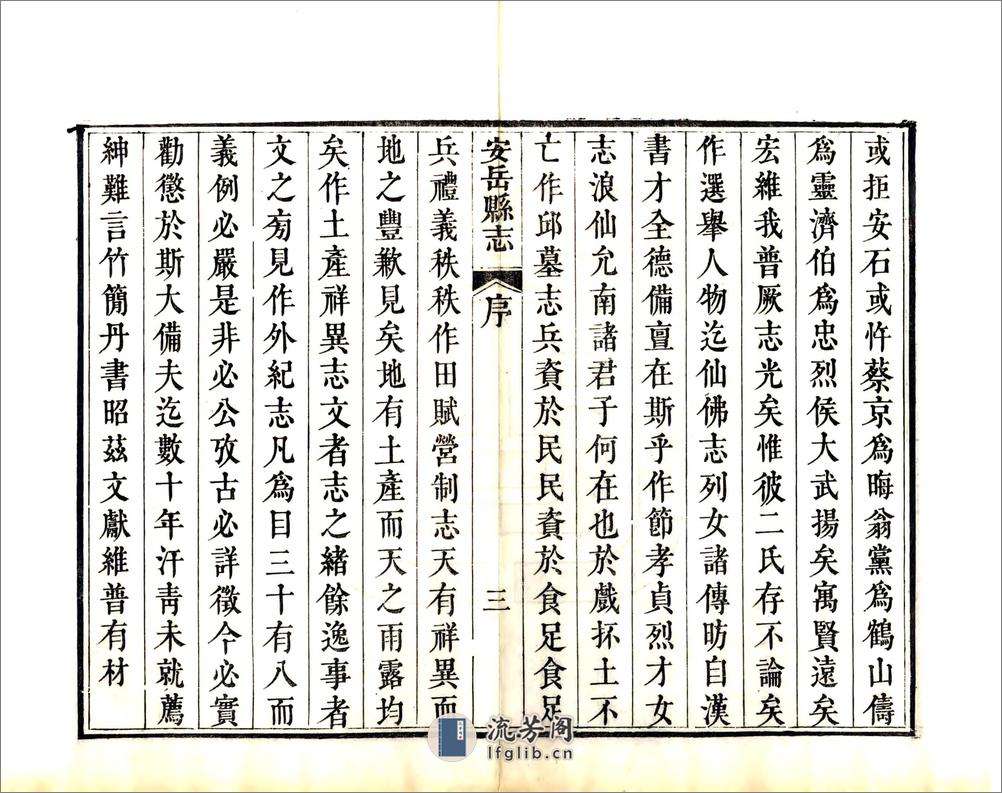 或拒安石或忤蔡京爲晦翁黨爲鶴山儔
爲靈濟伯爲忠烈侯大武揚矣寓賢遠矣
宏維我普厥志光矣惟彼二氏存不論矣
作選舉人物迄仙佛志列女諸傳昉自漢
書才全德備亶在斯乎作節孝貞烈才女
志浪仙允南諸君子何在也於戲抔土不
亡作邱墓志兵資於民民資於食足食足
安岳縣志
序
三
兵禮義秩秩作田賦營制志天有祥異而
地之豐歉見矣地有土產而天之雨露均
矣作土產祥異志文者志之緒餘逸事者
文之旁見作外紀志凡爲目三十有八而
義例必嚴是非必公攷古必詳徵今必實
勸懲於斯大備夫迄數十年汗靑未就薦
紳難言竹簡丹書昭茲文獻維普有材
流芳阁
lfglib.cn